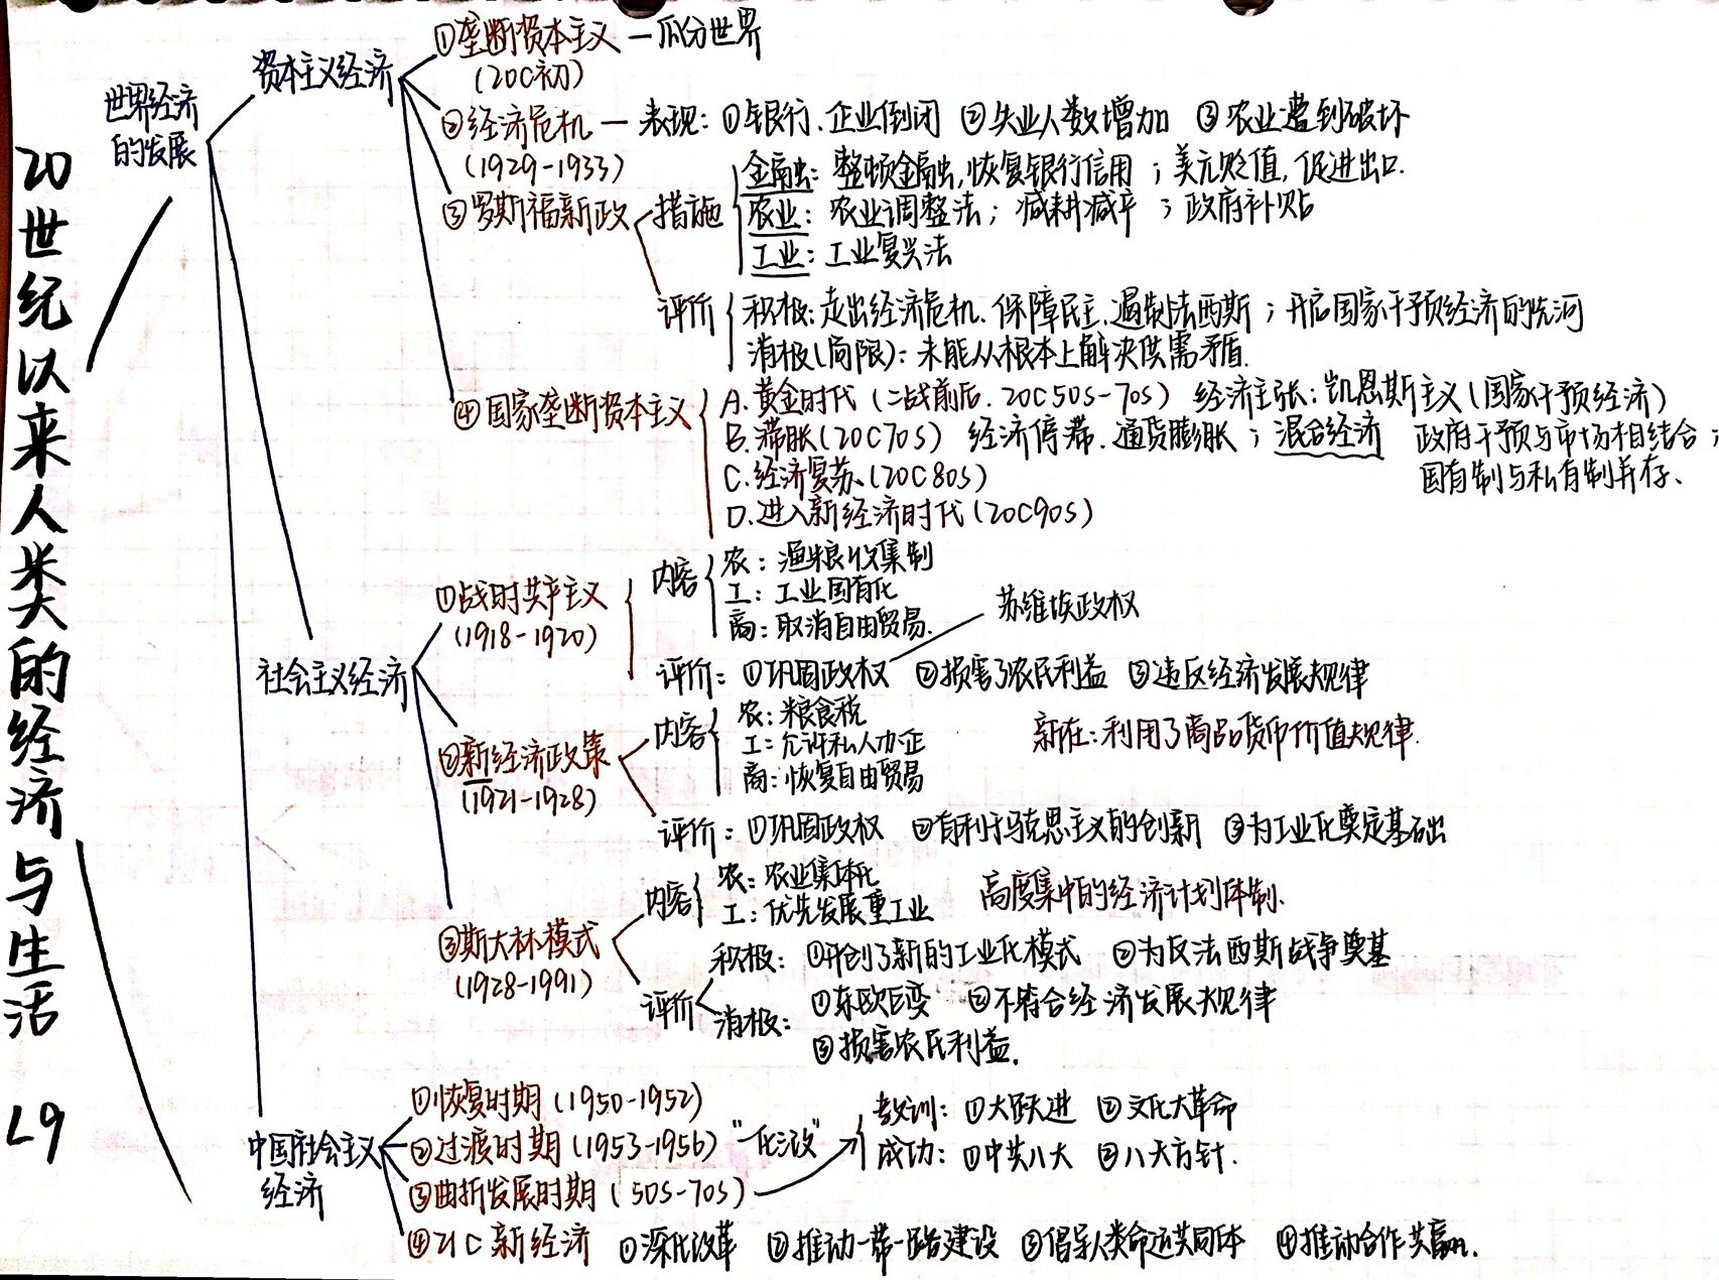 20世纪以来人类的经济与生活 L9
世界经济
的发展
资本主义经济
①垄断资本主义—瓜分世界
(20C初)
②经济危机—表现：①银行、企业倒闭 ②失业人数增加 ③农业遭到破坏
(1929-1933)
③罗斯福新政
措施
金融：整顿金融,恢复银行信用；美元贬值,促进出口.
农业：农业调整法；减耕减产；政府补贴
工业：工业复兴法
评价
积极：走出经济危机、保障民主、遏制法西斯；开启国家干预经济的先河
消极(局限)：未能从根本上解决供需矛盾.
④国家垄断资本主义
A.黄金时代(二战前后、20C50S-70S) 经济主张：凯恩斯主义(国家干预经济)
B.滞胀(20C70S) 经济停滞、通货膨胀；混合经济 政府干预与市场相结合；
国有制与私有制并存、
C.经济复苏、(20C80S)
D.进入新经济时代(20C90S)
社会主义经济
①战时共产主义
(1918-1920)
内容
农：余粮收集制
工：工业国有化
商：取消自由贸易.
苏维埃政权
评价：①巩固政权 ②损害了农民利益 ③违反经济发展规律
②新经济政策
(1921-1928)
内容
农：粮食税
工：允许私人办企
商：恢复自由贸易
新在：利用了商品货币价值规律.
评价：①巩固政权 ②有利于马克思主义的创新 ③为工业化奠定基础
③斯大林模式
(1928-1991)
内容
农：农业集体化
工：优先发展重工业
高度集中的经济计划体制.
评价
积极：①开创了新的工业化模式 ②为反法西斯战争奠基
消极：①东欧巨变 ②不符合经济发展规律
③损害农民利益.
中国社会主义
经济
①恢复时期(1950-1952)
②过渡时期(1953-1956)“一化三改”
③曲折发展时期(50S-70S)
教训：①大跃进 ②文化大革命
成功：①中共八大 ②八大方针.
④21C新经济 ①深化改革 ②推动一带一路建设 ③倡导人类命运共同体 ④推动合作共赢.